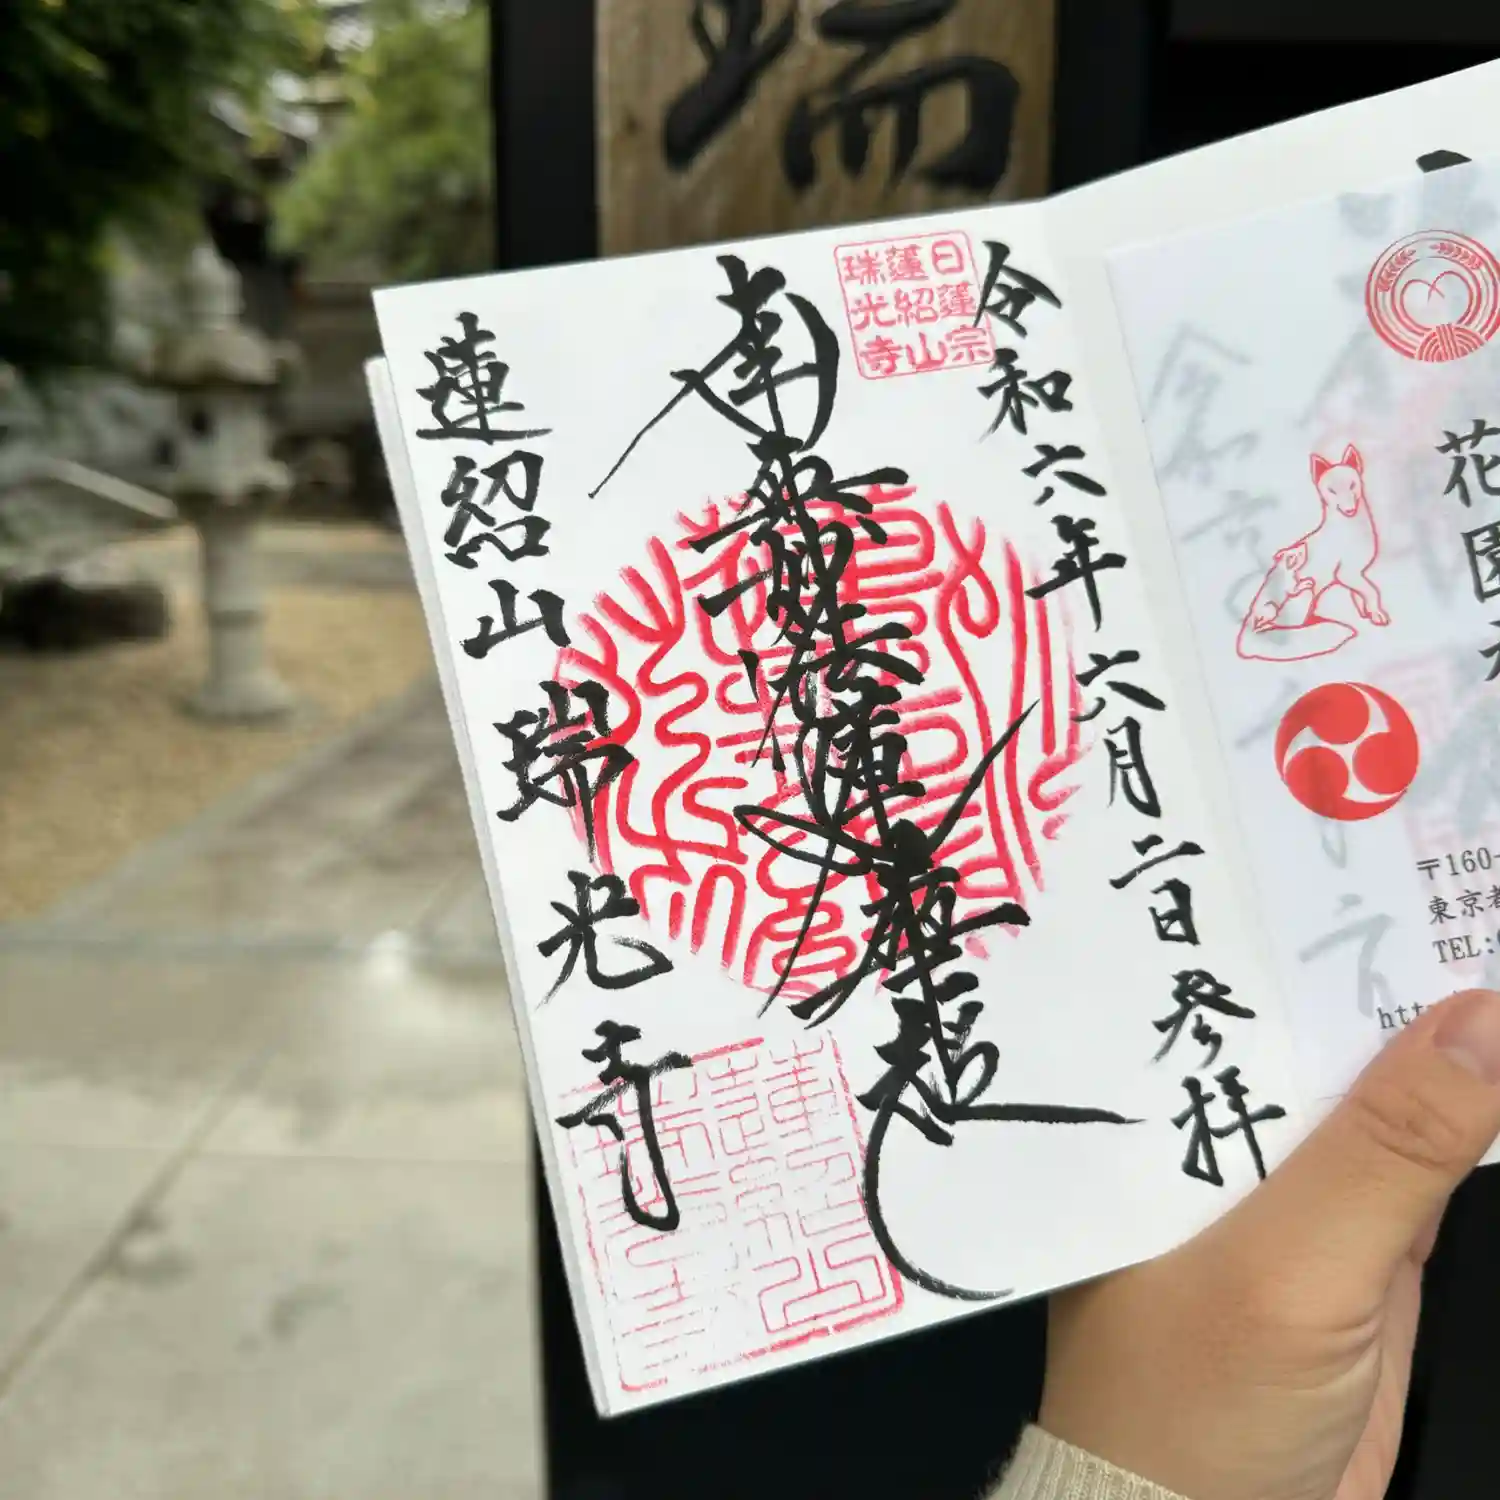 瑞
令和六年六月二日参拝
日蓮宗
蓮紹山
瑞光寺
南無妙法蓮華経
蓮紹山瑞光寺
花園
〒160-
東京都
TEL:
htt